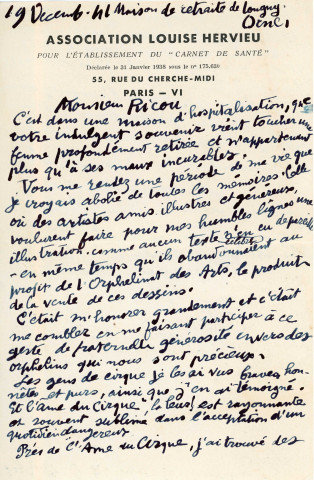 19 Decemb. 41 Maison de retraite de Longny
Orne
ASSOCIATION LOUISE HERVIEU
POUR L'ÉTABLISSEMENT DU "CARNET DE SANTÉ"
Déclarée le 21 Janvier 1938 sous le n° 175.620
55, RUE DU CHERCHE-MIDI
PARIS - VI
Monsieur Ricou
C'est dans une maison d'hospitalisation, que
votre indulgent souvenir vient toucher une
femme profondément retirée et n'appartenant
plus qu'à ses maux incurables.
Vous me rendez une période de ma vie que
je croyais abolie de toutes les mémoires. Celle
où des artistes amis illustres et généreux,
voulurent faire pour mes humbles lignes une
illustration comme aucun texte n'en eut de pareille
- en même temps qu'ils abandonnaient au
projet de l'Orphelinat des Arts, le produit
de la vente de ces dessins.
C'était m'honorer grandement et c'était
me combler en me faisant participer à ce
geste de fraternelle générosité envers des
orphelins qui nous sont précieux.
Les gens de cirque je les ai vus braves, hon-
nêtes et purs, ainsi que j'en ai témoigné.
Et l'âme du Cirque, la leur! est rayonnante
et souvent sublime dans l'acceptation d'un
quotidien dangereux
Près de l'Ame du Cirque, j'ai trouvé des